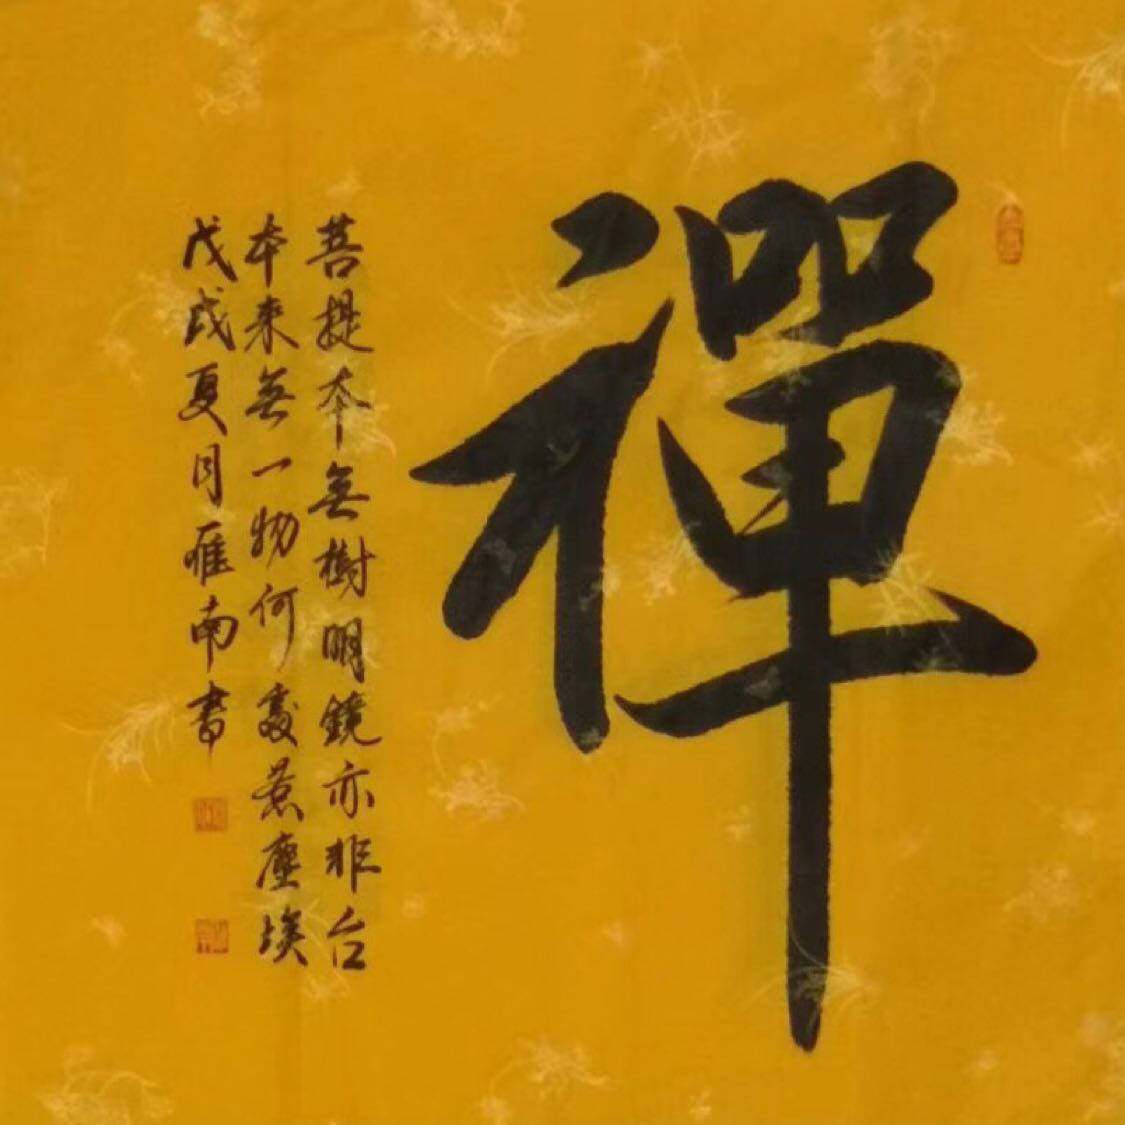 禪
菩提本無樹明鏡亦非台
本来無一物何處惹塵埃
戊戌夏月雁南書